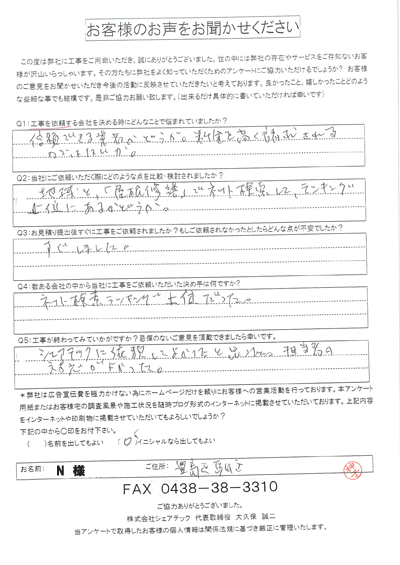 お客様のお声をお聞かせください
この度は弊社に工事をご用命いただき、誠にありがとうございました。世の中には弊社の存在やサービスをご存知ないお客
様が沢山いらっしゃいます。その方たちに弊社をよく知っていただくためのアンケートにご協力いただけるでしょうか? お客様
のご意見をお聞かせいただき今後の活動に反映させていただきたいと考えております。良かったこと、嬉しかったことどのよう
な些細な事でも結構です。是非ご協力お願い致します。(出来るだけ具体的に書いていただければ幸いです)
Q1:工事を依頼する会社を決める時にどんなことで悩まれていましたか?
信頼できる業者かどうか。料金を高く請求される
のではないか。
Q2:当社にご依頼いただく際にどのような点を比較・検討されましたか?
地域と、「屋根修繕」でネット検索して、ランキング
上位にあるかどうか。
Q3:お見積り提出後すぐに工事をご依頼されましたか?もしご依頼されなかったとしたらどんな点が不安でしたか?
すぐしました。
Q4:数ある会社の中から当社に工事をご依頼いただいた決め手は何ですか?
ネット検索ランキングで上位だった。
Q5:工事が終わってみていかがですか?忌憚のないご意見を頂戴できましたら幸いです。
シェアテックに依頼してよかったと思う。担当者の
対応がよかった。
*弊社は広告宣伝費を極力かけない為にホームページだけを頼りにお客様への営業活動を行っております。本アンケート
用紙またはお客様宅の調査風景や施工状況を随時ブログ形式のインターネットに掲載させていただいております。上記内容
をインターネットや印刷物に掲載させていただいてもよろしいでしょうか?
下記の中から〇印をお付下さい。
( )名前を出してもよい (○)イニシャルなら出してもよい
お名前: N 様 ご住所: 豊島区
FAX 0438-38-3310
ご協力ありがとうございました。
株式会社シェアテック 代表取締役 大久保 誠二
当アンケートで取得したお客様の個人情報は関係法規に基づき厳正に管理いたします。